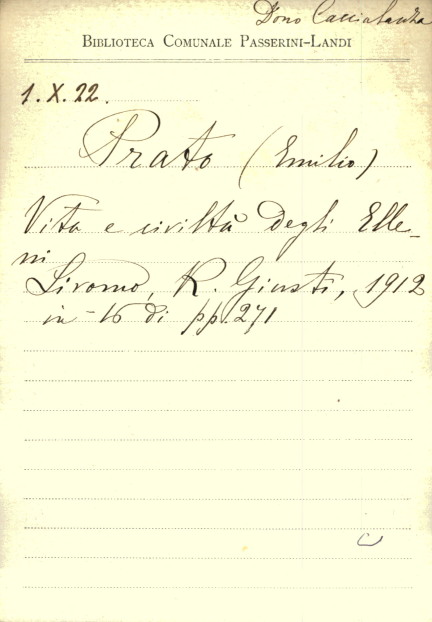 Dono Cacciatanza
BIBLIOTECA COMUNALE PASSERINI-LANDI
1. X. 22.
Prato (Emilio)
Vita e civiltà degli Elle-
ni
Livorno, R. Giusti, 1912
in-16 di pp. 271